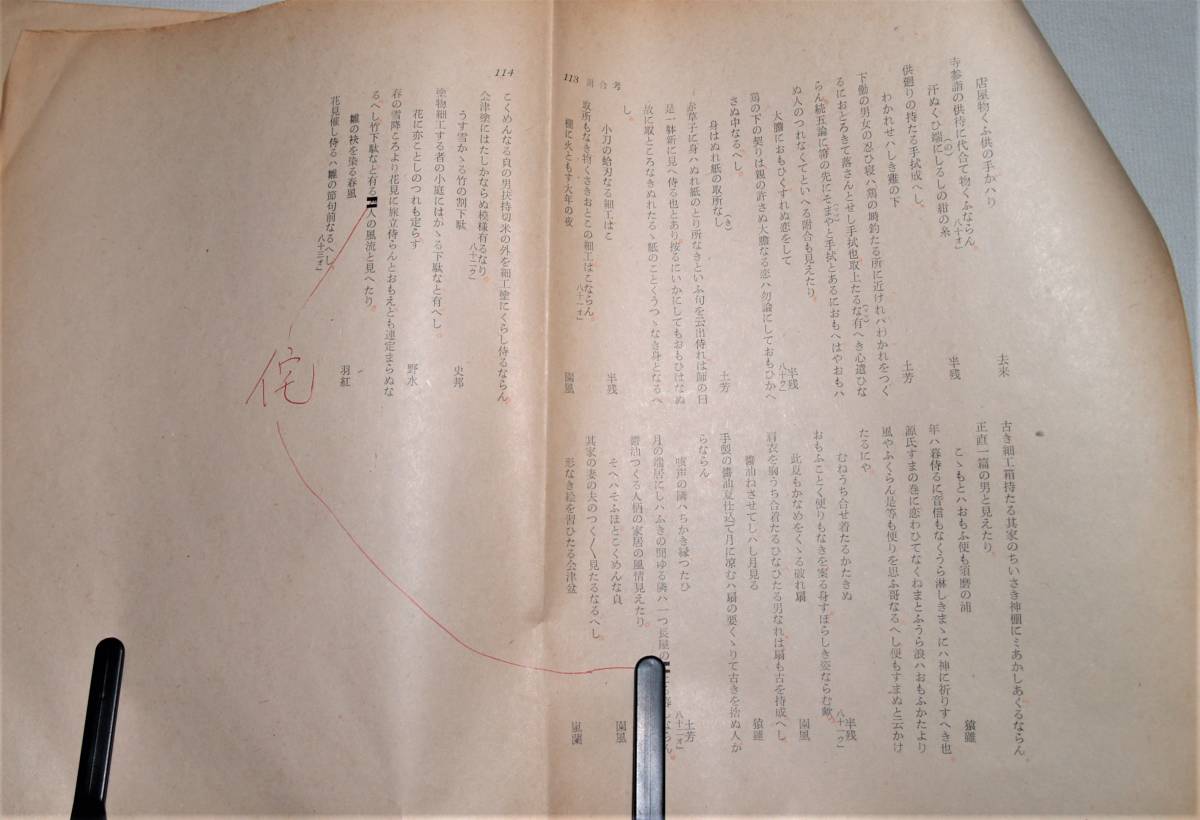 113 附合考
店屋物くふ供の手がハり 去来
寺参詣の供待に代合て物くふならん。八十オ」
汗ぬくひ端にしるしの紺の糸 半残
(の)
供廻りの持たる手拭成へし。
わかれせハしき鶏の下 土芳
下働の男女の忍ひ寝ハ鶏の塒釣たる所に近けれハわかれをつく
るにおとろきて落さんとせし手拭也取上たるな有へき心遣ひな
らん続五論に箒の先にそまやと手拭とあるにおもへはやおもハ
ぬ人のつれなくてといへる附合も見えたり。
大胆におもひくずれぬ恋をして 半残
鶏の下の契りは親の許さぬ大胆なる恋ハ勿論にしておもひかへ
八十ウ」
さぬ中なるへし。
身はぬれ紙の取所なし 土芳
(き)
赤草子に身ハぬれ紙のとり所なきといふ句を云出侍れは師の曰
是一躰新に見へ侍る也とあり按るにいかにしてもおもひはなぬ
故に取ところなきぬれたるゝ紙のことくうつゝなき身となるへ
し。
小刀の蛤刃なる細工はこ 半残
取所もなき物くさきおとこの細工はこならん。八十一オ」
棚に火ともす大年の夜 園風
古き細工箱持たる其家のちいさき神棚にミあかしあくるならん
正直一篇の男と見えたり。
こゝもとハおもふ便も須磨の浦 猿雖
年ハ暮侍るに音信もなくうら淋しきまゝにハ神に祈りすへき也
源氏すまの巻に恋わひてなくねまとふうら浪ハおもふかたより
風やふくらん是等も便りを思ふ哥なるへし便もすまぬと云かけ
たるにや。
むねうち合せ着たるかたきぬ 半残
おもふことく便りもなきを案る身すほらしき姿ならむ歟。八十一ウ」
此夏もかなめをくゝる破れ扇 園風
肩衣を胸うち合着たるひなひたる男なれは扇も古を持成へし。
醬油ねさせてしハし月見る 猿雖
手製の醬油夏仕込て月に凉むハ扇の要くゝりて古きを捨ぬ人か
らならん
咳声の隣ハちかき縁つたひ 土芳
月の端居にしハふきの聞ゆる隣ハ一つ長屋の
ならん。八十二オ」
そへハそふほとこくめんな貞 園風
醬油つくる人柄の家居の風情見えたり。
其家の妻の夫のつく〱見たるなるへし。
形なき絵を習ひたる会津盆 嵐蘭
114
こくめんなる貞の男扶持切米の外を細工塗にくらし侍るならん。
会津塗にはたしかならぬ模様有るなり。八十二ウ」
うす雪かゝる竹の割下駄 史邦
塗物細工する者の小庭にはかゝる下駄なと有へし。
花に亦ことしのつれも定らす 野水
春の雪降ころより花見に旅立侍らんとおもえとも連定まらぬな
るへし竹下駄なと有る 人の風流と見へたり。
雛の袂を染る春風 羽紅
花見催し侍るハ雛の節句前なるへし。八十三オ」
侘